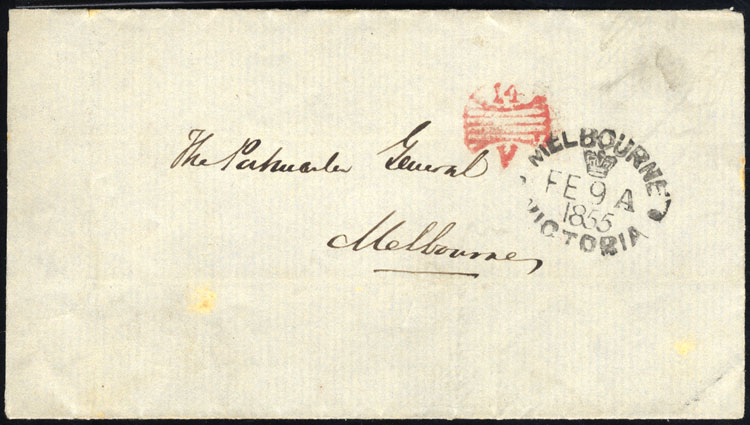 14
V
MELBOURNE
FE 9 A
1855
VICTORIA
The Postmaster General
Melbourne